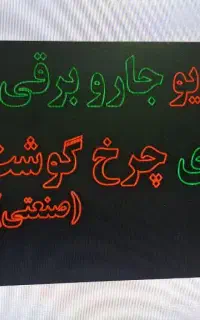 یو جارو برقی
ی چرخ گوشت
(صنعتی)